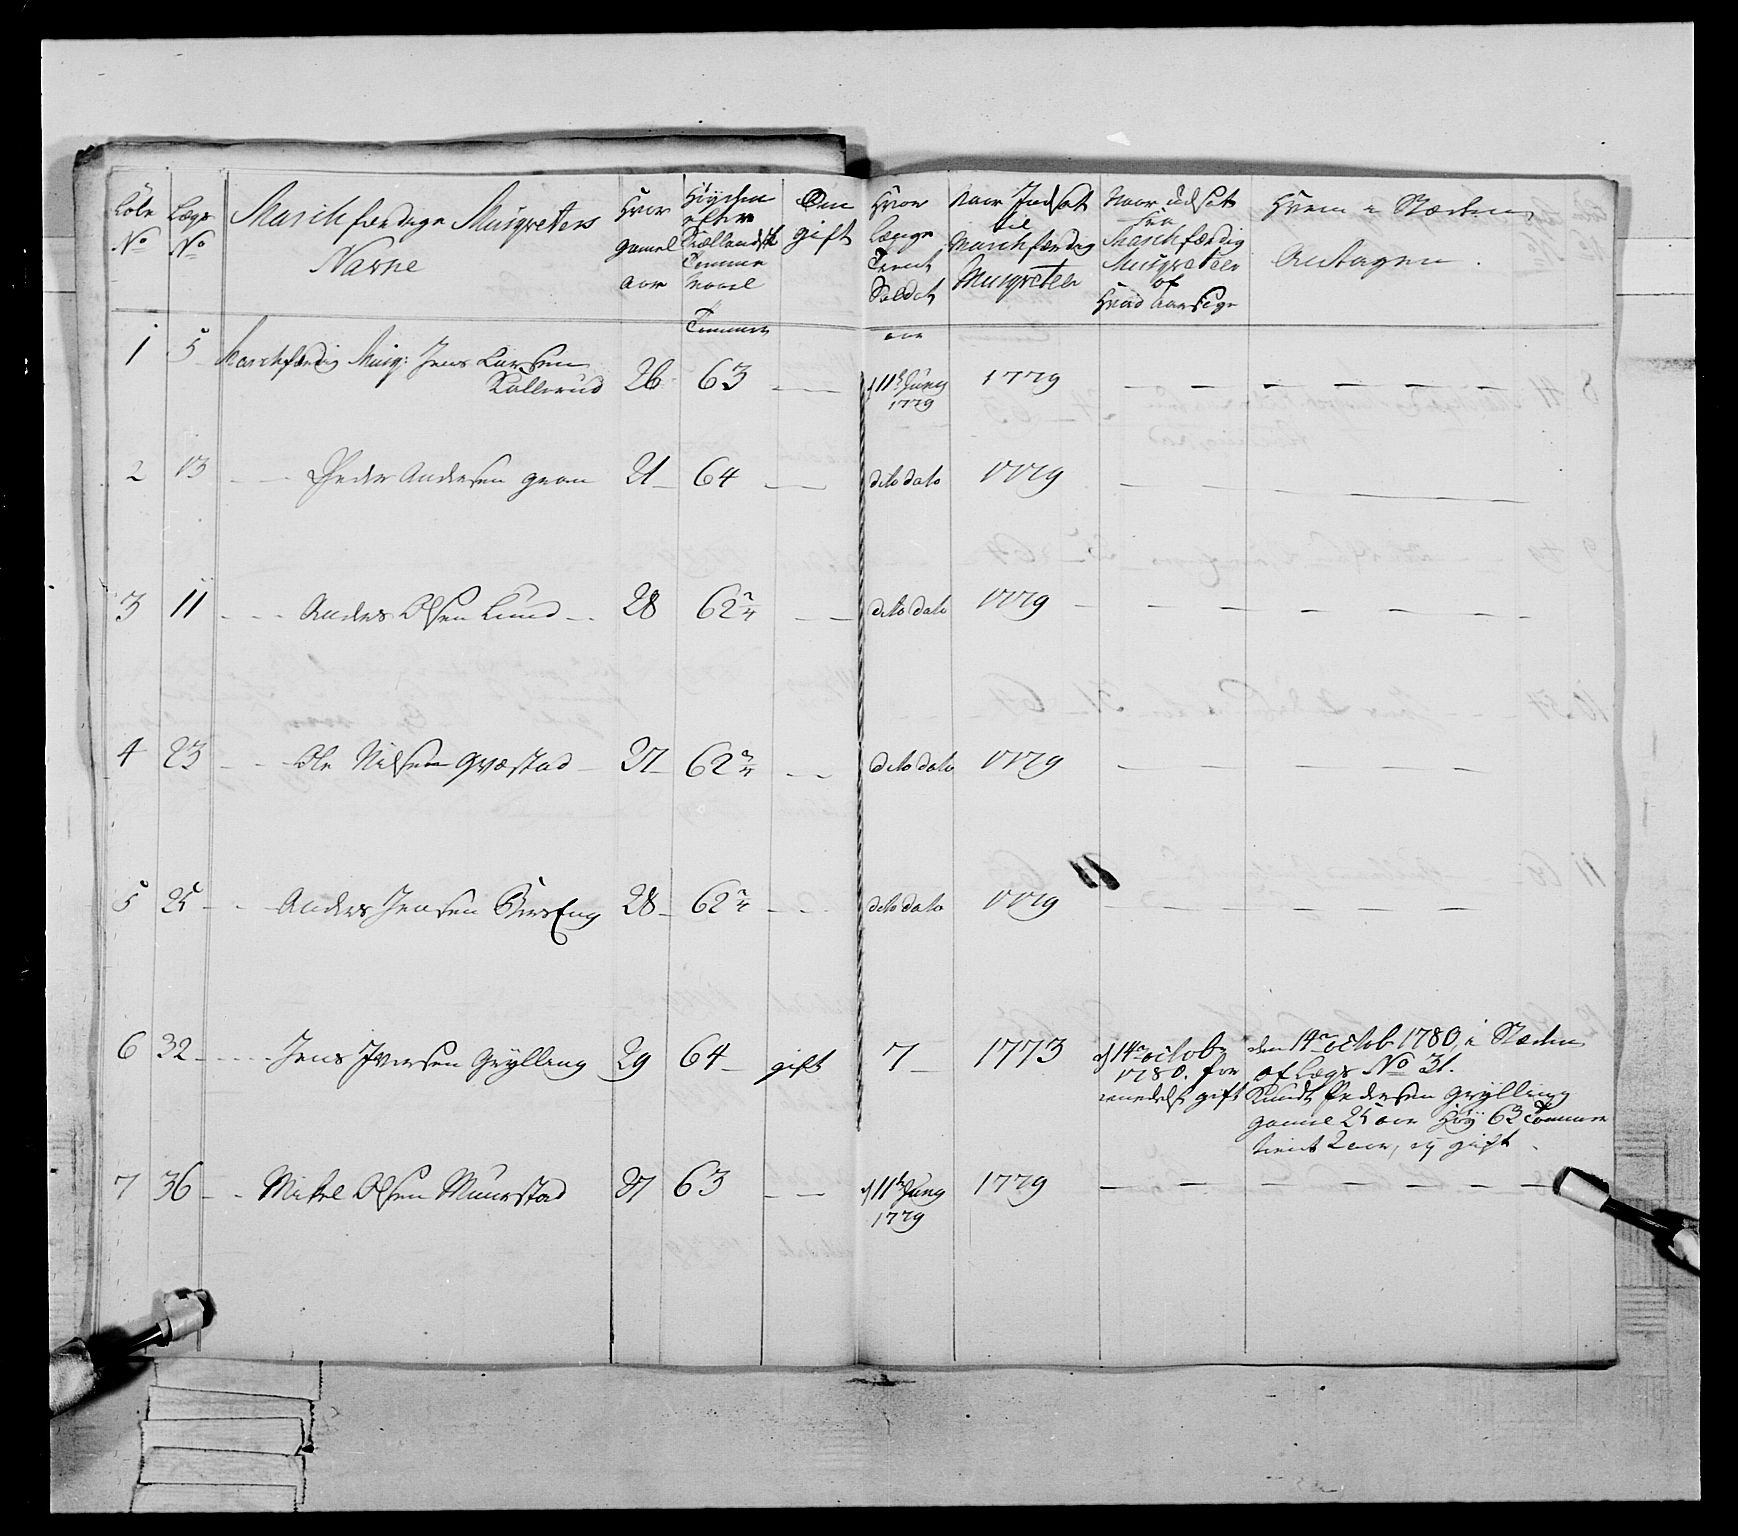 Löbe No
Lægs No
Marchfærdige Musqveters Navne
Hvor gamel aar
Höyden efter Siællandsk Tomme Maael
Tommer
Om gift
Hvor længe Tient Soldat
aar
Naar Indsat til Marchfærdig Musqveteer
Naar udsat fra Marchfærdig Musqveteer og Hvad aarsage
Hvem i Stæden Antagen.
1 5 Marchfærdig Musq: Jens Larsen Kallerud 26 63 — d 11te Juny 1779 1779 — — — — — —
2 13 — — Peder Andersen gran 21 64 — dito dato 1779 — — — — — —
3 11 — — Anders Olsen Lund 28 62 — — dito dato 1779 — — — — — —
4 23 — — Ole Nilsen Qvæstad 27 62 — — dito dato 1779 — — — — —
5 25 — — Anders Jensen 28 62 — — dito dato 1779 — — — — — —
6 32 — — Jens Iversen Grÿlling 29 64 gift 7 1773 d 14n octob 1780. for
den 14n octob 1780, i Stæden
af Lægs No 31.
Knudt Pedersen Grÿlling
gamel 25 aar Höÿ 63 Tommer
tient 2 aar, eÿ gift.
7 36 — — Mikel Olsen Muurstad 27 63 — — d 11te Juny 1779 1779 — — — — — —